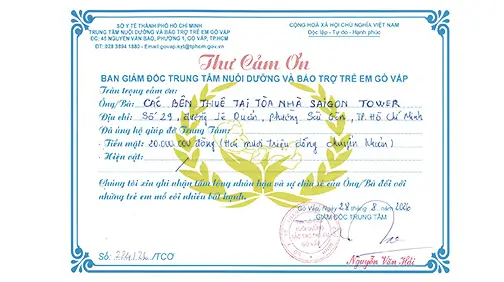 SỞ Y TẾ THÀNH PHỐ HỒ CHÍ MINH
TRUNG TÂM NUÔI DƯỠNG VÀ BẢO TRỢ TRẺ EM GÒ VẤP
ĐC: 45 NGUYỄN VĂN BẢO, PHƯỜNG 1, GÒ VẤP, TP.HCM
ĐT: 028 3894 1880 - Email:govap.syt@tphcm.gov.vn
CỘNG HOÀ XÃ HỘI CHỦ NGHĨA VIỆT NAM
Độc lập - Tự do - Hạnh phúc
Thư Cảm Ơn
BAN GIÁM ĐỐC TRUNG TÂM NUÔI DƯỠNG VÀ BẢO TRỢ TRẺ EM GÒ VẤP
Trân trọng cảm ơn:
Ông/Bà: CÁC BÊN THUÊ TẠI TÒA NHÀ SAIGON TOWER
Địa chỉ: Số 29, đường Lê Duẩn, Phường Sài Gòn, TP. Hồ Chí Minh
Đã ủng hộ giúp đỡ Trung Tâm:
- Tiền mặt: 20.000.000 đồng (Hai mươi triệu đồng chuyển khoản)
- Hiện vật:
Chúng tôi xin ghi nhận tấm lòng nhân hậu và sự chia sẻ của Ông/Bà đối với
những trẻ em mồ côi nhiều bất hạnh.
Gò Vấp, Ngày 28 tháng 8 năm 2026
GIÁM ĐỐC TRUNG TÂM
Nguyễn Văn Hải
Số: 224/26 /TCƠ